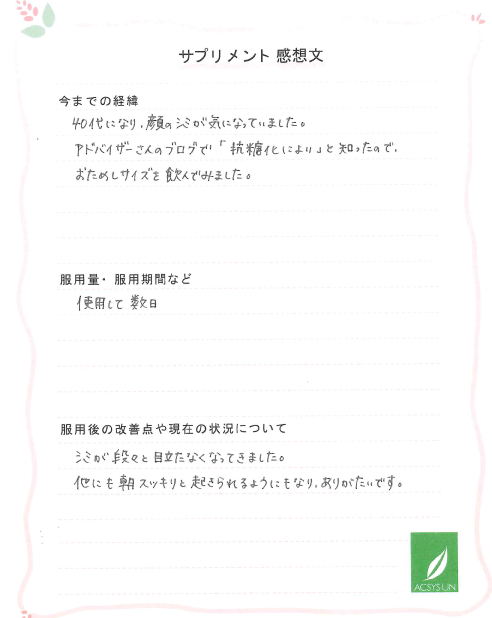 サプリメント 感想文
今までの経緯
40代になり、顔のシミが気になっていました。
アドバイザーさんのブログで「抗糖化によい」と知ったので、
おためしサイズを飲んでみました。
服用量・服用期間など
使用して数日
服用後の改善点や現在の状況について
シミが段々と目立たなくなってきました。
他にも朝スッキリと起きられるようにもなり、ありがたいです。
ACSYSUN